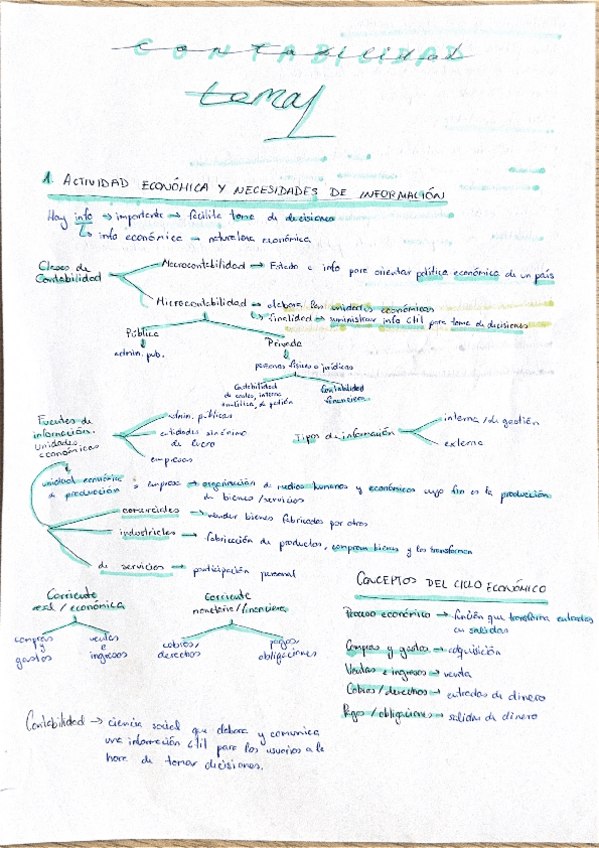 CONTABILIDAD
tema 1
1. ACTIVIDAD ECONÓMICA Y NECESIDADES DE INFORMACIÓN
Hay info → importante → facilite toma de decisiones
↳ info económica → naturaleza económica
Clases de Contabilidad
Macrocontabilidad → Estado e info para orientar política económica de un país
Microcontabilidad → elabora las unidades económicas
↳ finalidad → suministrar info útil para toma de decisiones
Pública
admin. pub.
Privada
personas físicas o jurídicas
Contabilidad de costes, interna analítica, de gestión
Contabilidad financiera
Fuentes de información. Unidades económicas
admin. públicas
entidades sin ánimo de lucro
empresas
Tipos de información
interna / de gestión
externa
unidad económica de producción = empresa → organización de medios humanos y económicos cuyo fin es la producción
de bienes / servicios
comerciales → vender bienes fabricados por otros
industriales → fabricación de productos, compran bienes y los transforman
de servicios → participación personal
Corriente real / económica
compras y gastos
ventas e ingresos
Corriente monetaria / financiera
cobros / derechos
pagos / obligaciones
CONCEPTOS DEL CICLO ECONÓMICO
Proceso económico → función que transforma entradas
en salidas
Compras y gastos → adquisición
Ventas e ingresos → venta
Cobros / derechos → entradas de dinero
Pagos / obligaciones → salidas de dinero
Contabilidad → ciencia social que elabora y comunica
una información útil para los usuarios a la
hora de tomar decisiones.